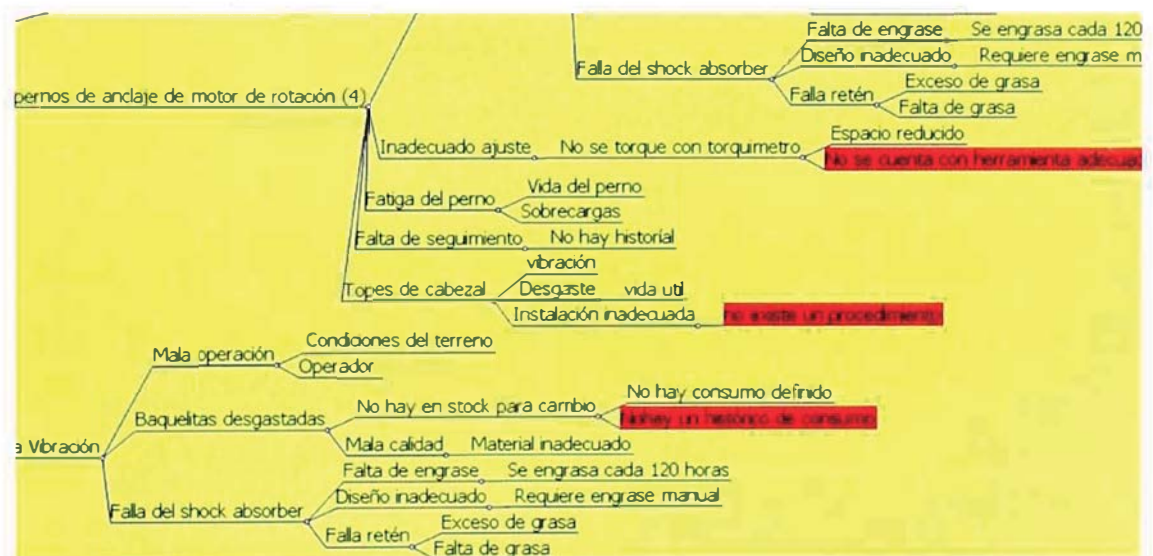 Falta de engrase Se engrasa cada 120
Diseño inadecuado Requiere engrase m
Falla del shock absorber
Falla retén
Exceso de grasa
Falta de grasa
pernos de anclaje de motor de rotación (4)
Inadecuado ajuste No se torque con torquimetro
Espacio reducido
No se cuenta con herramienta adecuad
Fatiga del perno
Vida del perno
Sobrecargas
Falta de seguimiento No hay historial
Topes de cabezal
vibración
Desgaste vida util
Instalación inadecuada no existe un procedimiento
Mala operación
Condiciones del terreno
Operador
Baquelitas desgastadas
No hay en stock para cambio
No hay consumo definido
No hay un histórico de consumo
Mala calidad Material inadecuado
a Vibración
Falla del shock absorber
Falta de engrase Se engrasa cada 120 horas
Diseño inadecuado Requiere engrase manual
Falla retén
Exceso de grasa
Falta de grasa